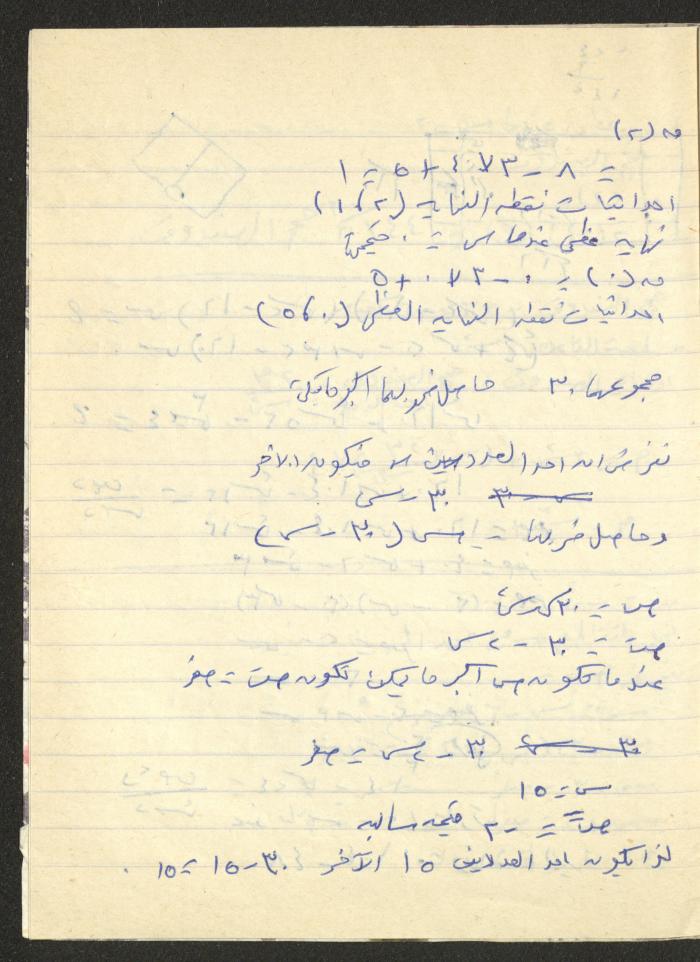 ص (٢)
= ٨ - ٣ × ٤ + ٥ = ١
احداثيات نقطه النهايه (٢ ، ١)
نهايه عظمى عندما س = ٠ قيمتها
ص (٠) = ٠ - ٣ × ٠ + ٥
احداثيات نقطه النهايه العظمى (٠ ، ٥)
مجموعهما ٣٠ حاصل ضربهما اكبر ما يمكن
نفرض ان احد العددين س فيكون الآخر
٣٠ - س
وحاصل ضربهما = س (٣٠ - س)
ص = ٣٠ س - س٢
صَ = ٣٠ - ٢س
عندما تكون ص اكبر ما يمكن تكون صَ = صفر
٣٠ - ٢س = صفر
س = ١٥
صً = - ٢ قيمه سالبه
لذا يكون احد العددين ١٥ الآخر ٣٠ - ١٥ = ١٥ .